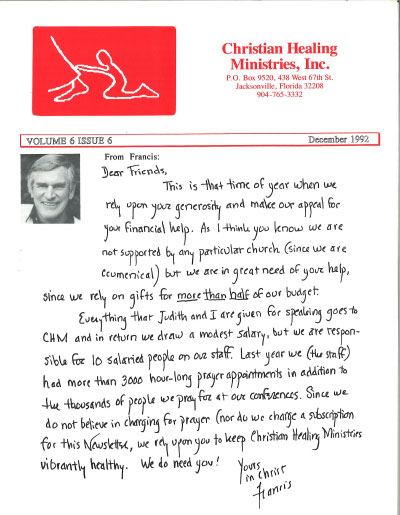 Christian Healing
Ministries, Inc.
P.O. Box 9520, 438 West 67th St.
Jacksonville, Florida 32208
904-765-3332
VOLUME 6 ISSUE 6 December 1992
From Francis:
Dear Friends,
This is that time of year when we
rely upon your generosity and make our appeal for
your financial help. As I think you know we are
not supported by any particular church (since we are
ecumenical) but we are in great need of your help,
since we rely on gifts for more than half of our budget.
Everything that Judith and I are given for speaking goes to
CHM and in return we draw a modest salary, but we are respon-
sible for 10 salaried people on our staff. Last year we (the staff)
had more than 3000 hour-long prayer appointments in addition to
the thousands of people we pray for at our conferences. Since we
do not believe in charging for prayer (nor do we charge a subscription
for this Newsletter, we rely upon you to keep Christian Healing Ministries
vibrantly healthy. We do need you!
Yours
in Christ
Francis